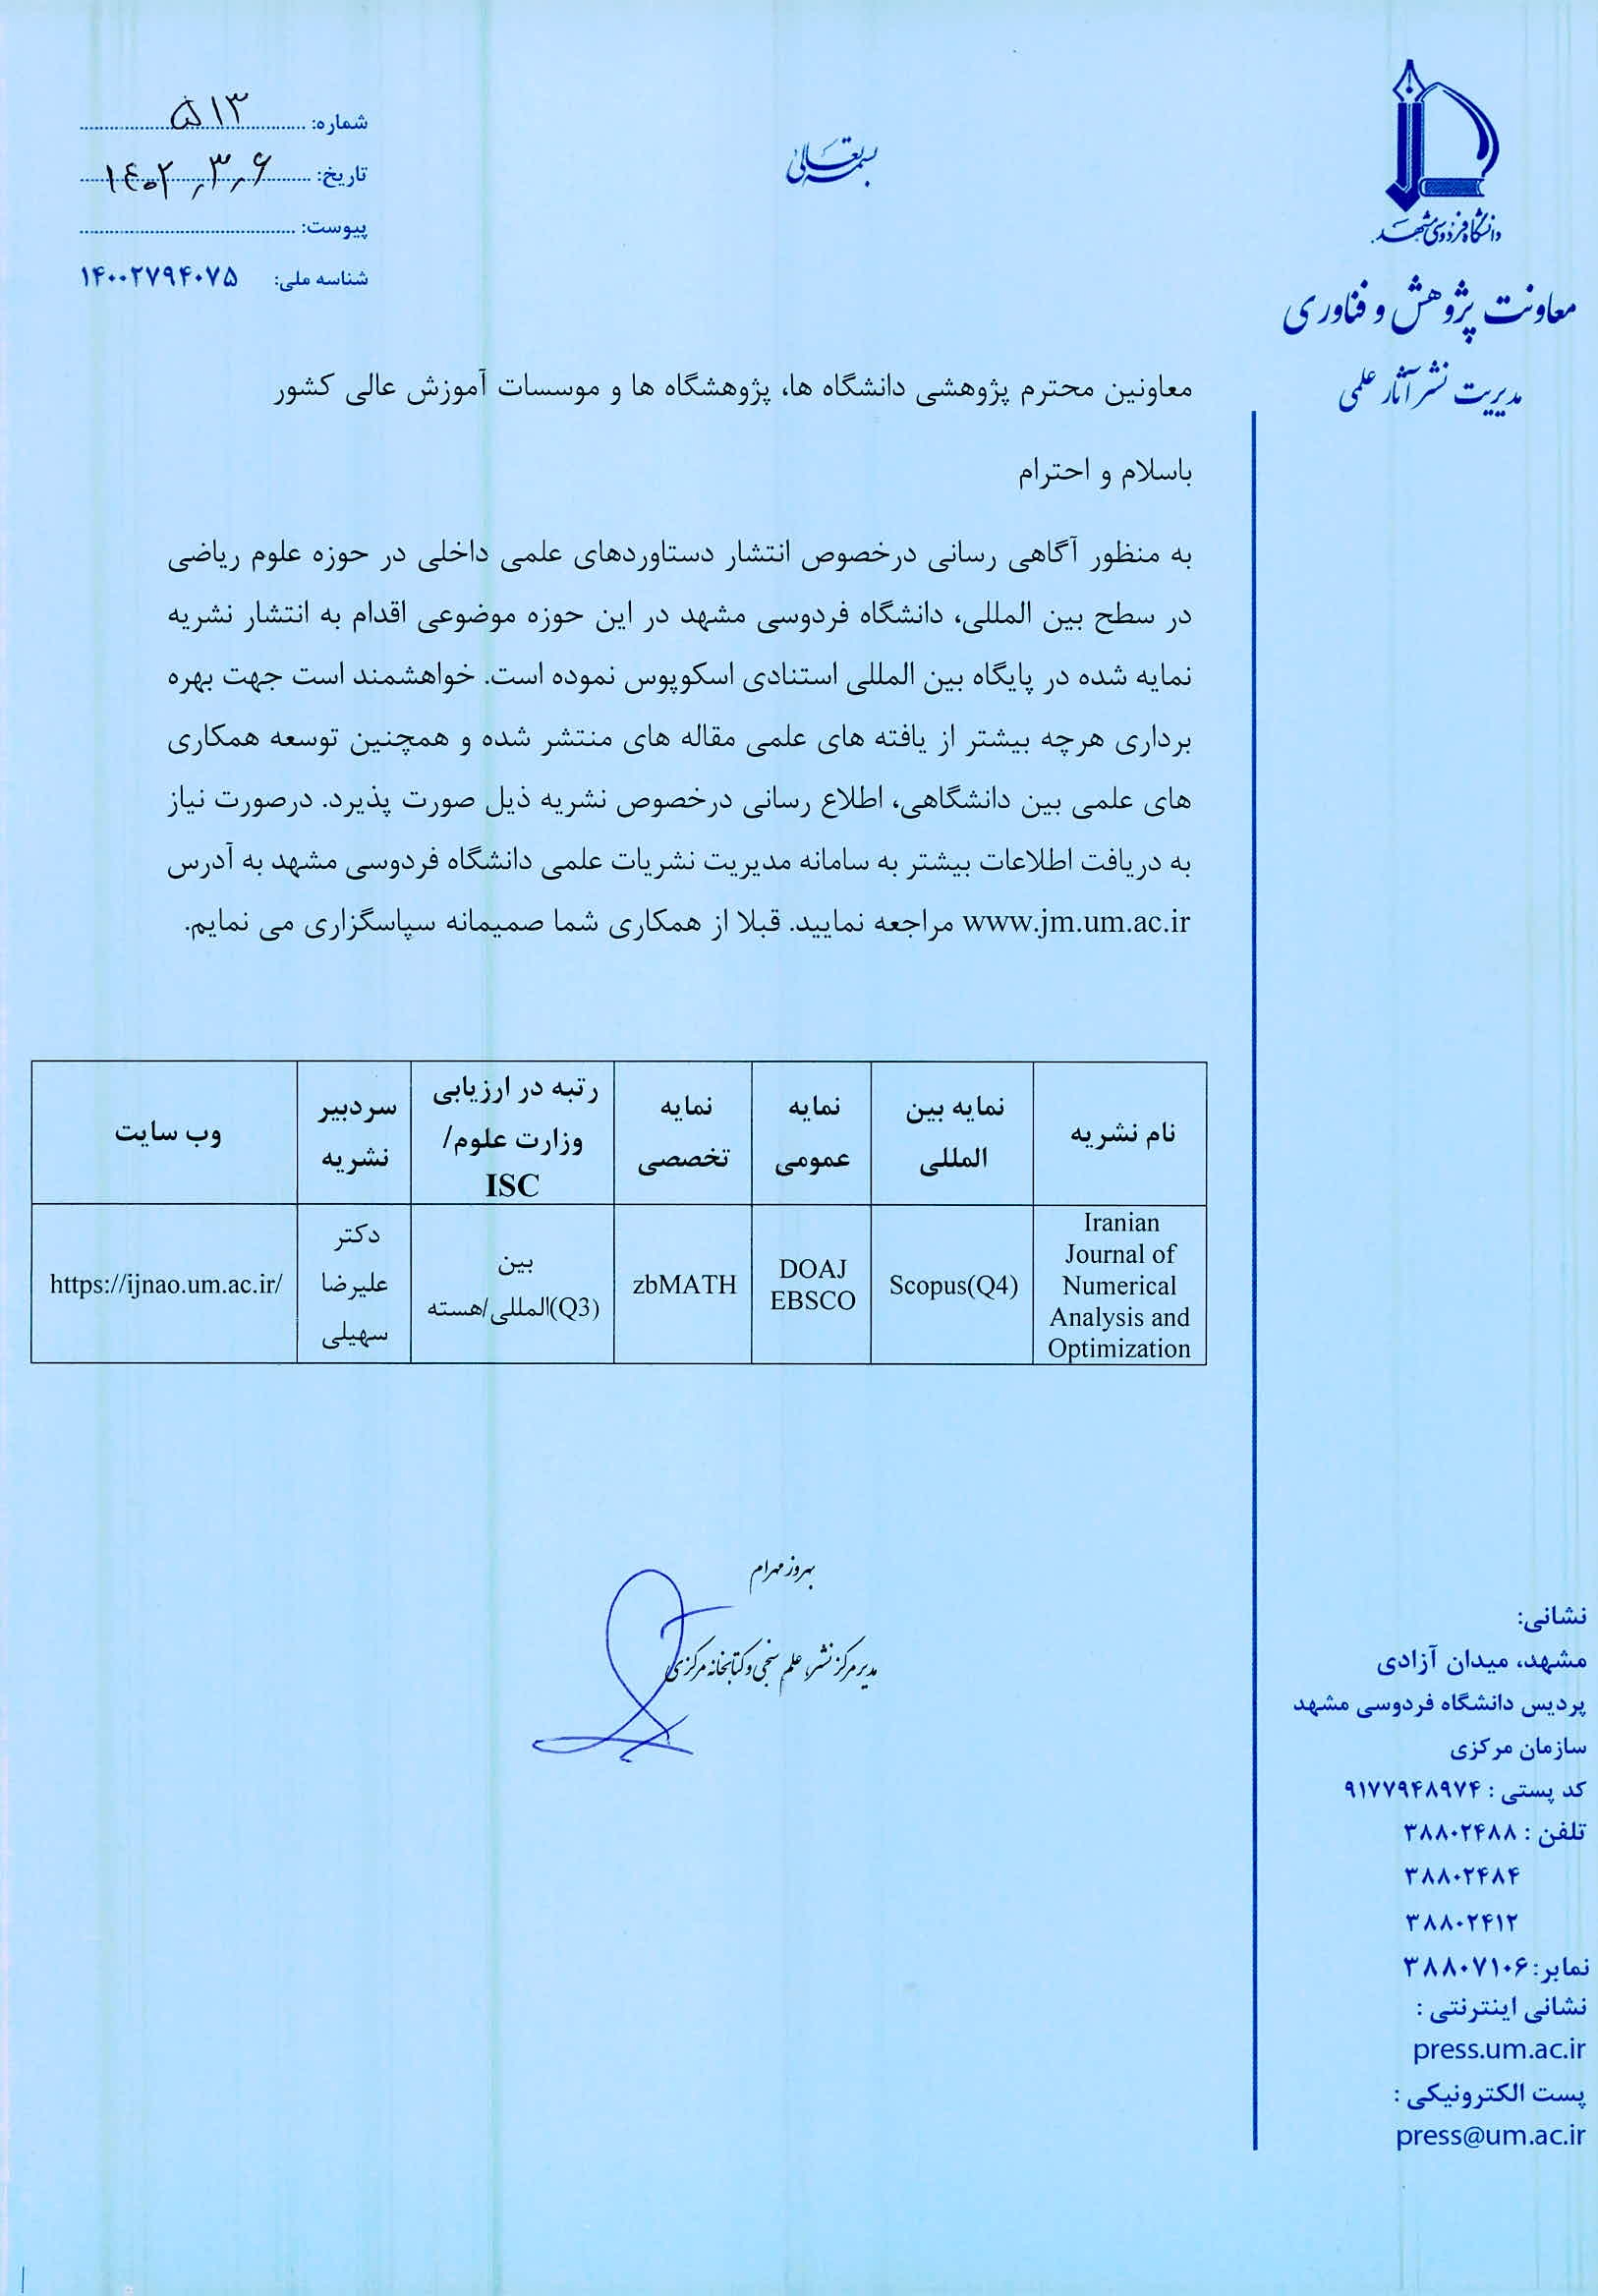 بسمه تعالی
دانشگاه فردوسی مشهد
معاونت پژوهش و فناوری
مدیریت نشر آثار علمی
شماره: ۵۱۳
تاریخ: ۱۴۰۲,۳,۶
پیوست:
شناسه ملی: ۱۴۰۰۲۷۹۴۰۷۵
معاونین محترم پژوهشی دانشگاه ها، پژوهشگاه ها و موسسات آموزش عالی کشور
باسلام و احترام
به منظور آگاهی رسانی درخصوص انتشار دستاوردهای علمی داخلی در حوزه علوم ریاضی
در سطح بین المللی، دانشگاه فردوسی مشهد در این حوزه موضوعی اقدام به انتشار نشریه
نمایه شده در پایگاه بین المللی استنادی اسکوپوس نموده است. خواهشمند است جهت بهره
برداری هرچه بیشتر از یافته های علمی مقاله های منتشر شده و همچنین توسعه همکاری
های علمی بین دانشگاهی، اطلاع رسانی درخصوص نشریه ذیل صورت پذیرد. درصورت نیاز
به دریافت اطلاعات بیشتر به سامانه مدیریت نشریات علمی دانشگاه فردوسی مشهد به آدرس
www.jm.um.ac.ir مراجعه نمایید. قبلا از همکاری شما صمیمانه سپاسگزاری می نمایم.
نام نشریه
نمایه بین
المللی
نمایه
عمومی
نمایه
تخصصی
رتبه در ارزیابی
وزارت علوم/
ISC
سردبیر
نشریه
وب سایت
Iranian
Journal of
Numerical
Analysis and
Optimization
Scopus(Q4)
DOAJ
EBSCO
zbMATH
بین
المللی/هسته(Q3)
دکتر
علیرضا
سهیلی
https://ijnao.um.ac.ir/
بهروز مهرام
مدیر مرکز نشر، علم سنجی و کتابخانه مرکزی
نشانی:
مشهد، میدان آزادی
پردیس دانشگاه فردوسی مشهد
سازمان مرکزی
کد پستی : ۹۱۷۷۹۴۸۹۷۴
تلفن : ۳۸۸۰۲۴۸۸
۳۸۸۰۲۴۸۴
۳۸۸۰۲۴۱۲
نمابر: ۳۸۸۰۷۱۰۶
نشانی اینترنتی :
press.um.ac.ir
پست الکترونیکی :
press@um.ac.ir